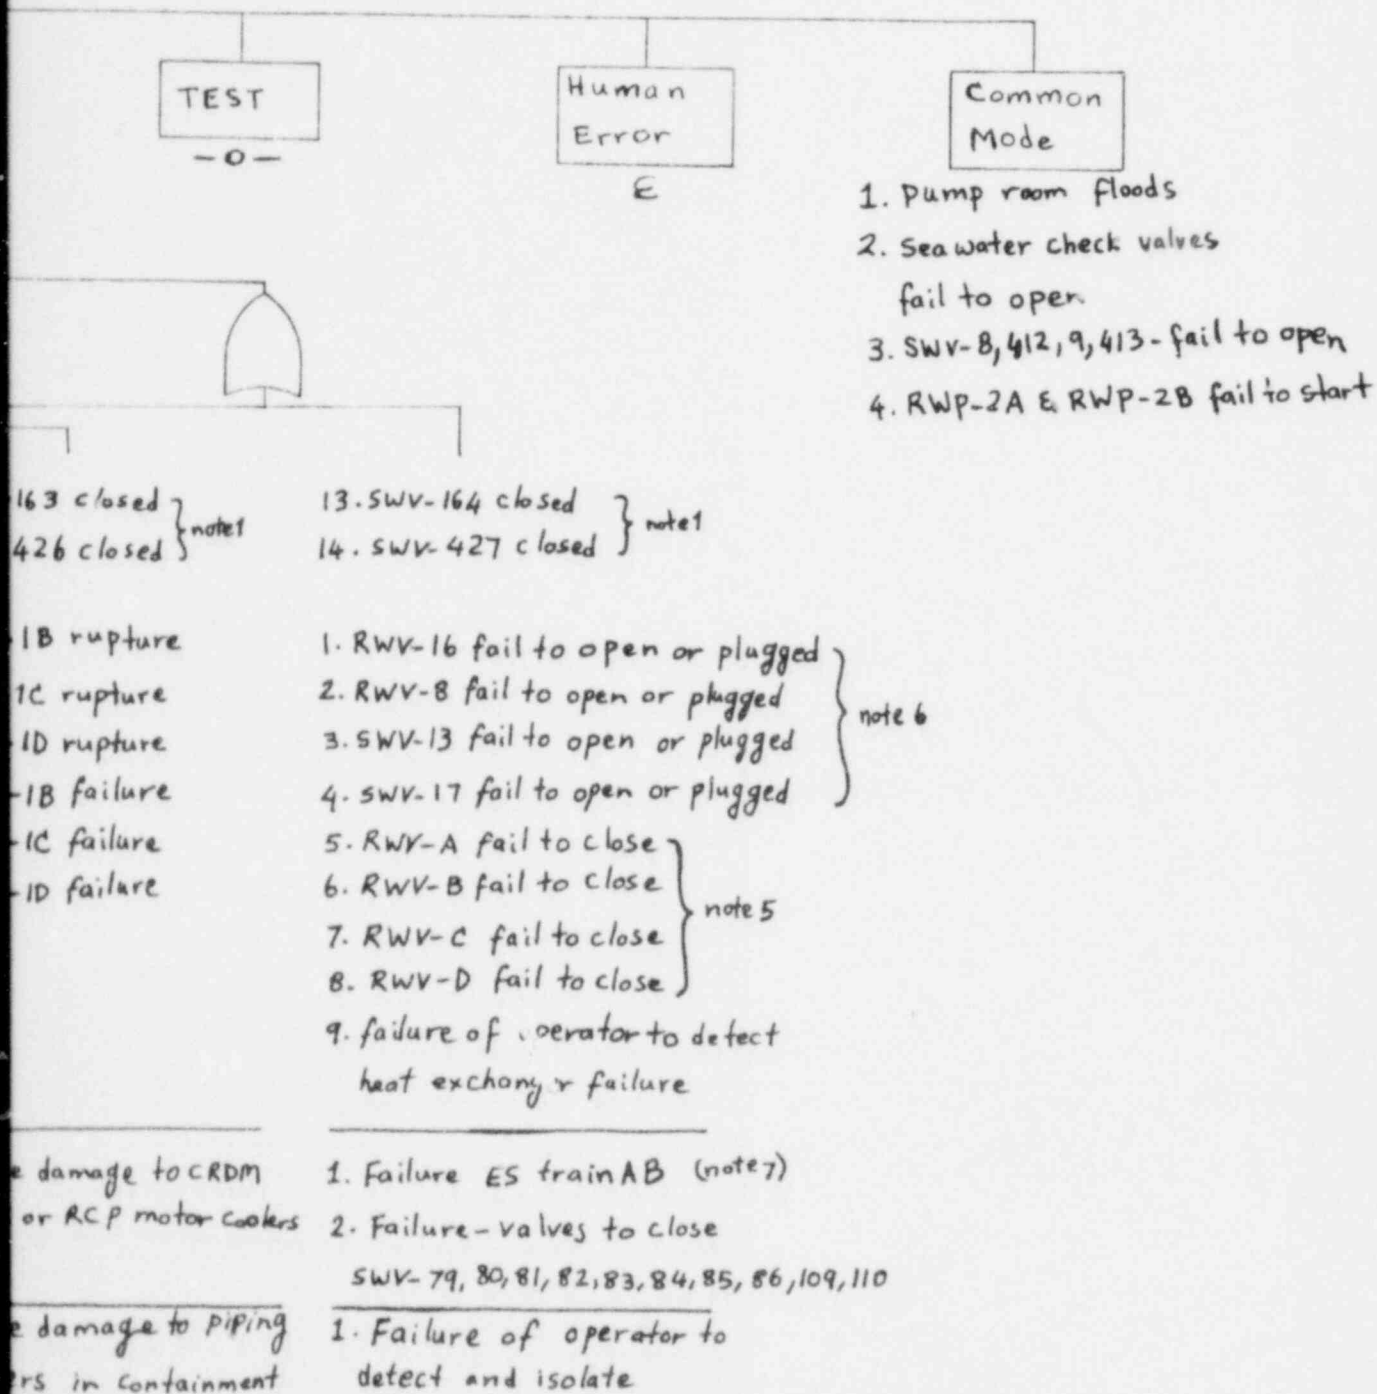 TEST
- 0 -
Human
Error
ε
Common
Mode
1. Pump room floods
2. Sea water check valves
fail to open
3. SWV-8, 412, 9, 413 - fail to open
4. RWP-2A & RWP-2B fail to start
163 closed
426 closed
note 1
13. SWV-164 closed
14. SWV-427 closed
note 1
1B rupture
1C rupture
1D rupture
-1B failure
-1C failure
-1D failure
1. RWV-16 fail to open or plugged
2. RWV-8 fail to open or plugged
3. SWV-13 fail to open or plugged
4. SWV-17 fail to open or plugged
note 6
5. RWV-A fail to close
6. RWV-B fail to close
7. RWV-C fail to close
8. RWV-D fail to close
note 5
9. failure of to detect
heat failure
damage to CRDM
or RCP motor coolers
1. Failure ES train AB (note 7)
2. Failure - valves to close
SWV-79, 80, 81, 82, 83, 84, 85, 86, 109, 110
damage to piping
in containment
1. Failure of operator to
detect and isolate